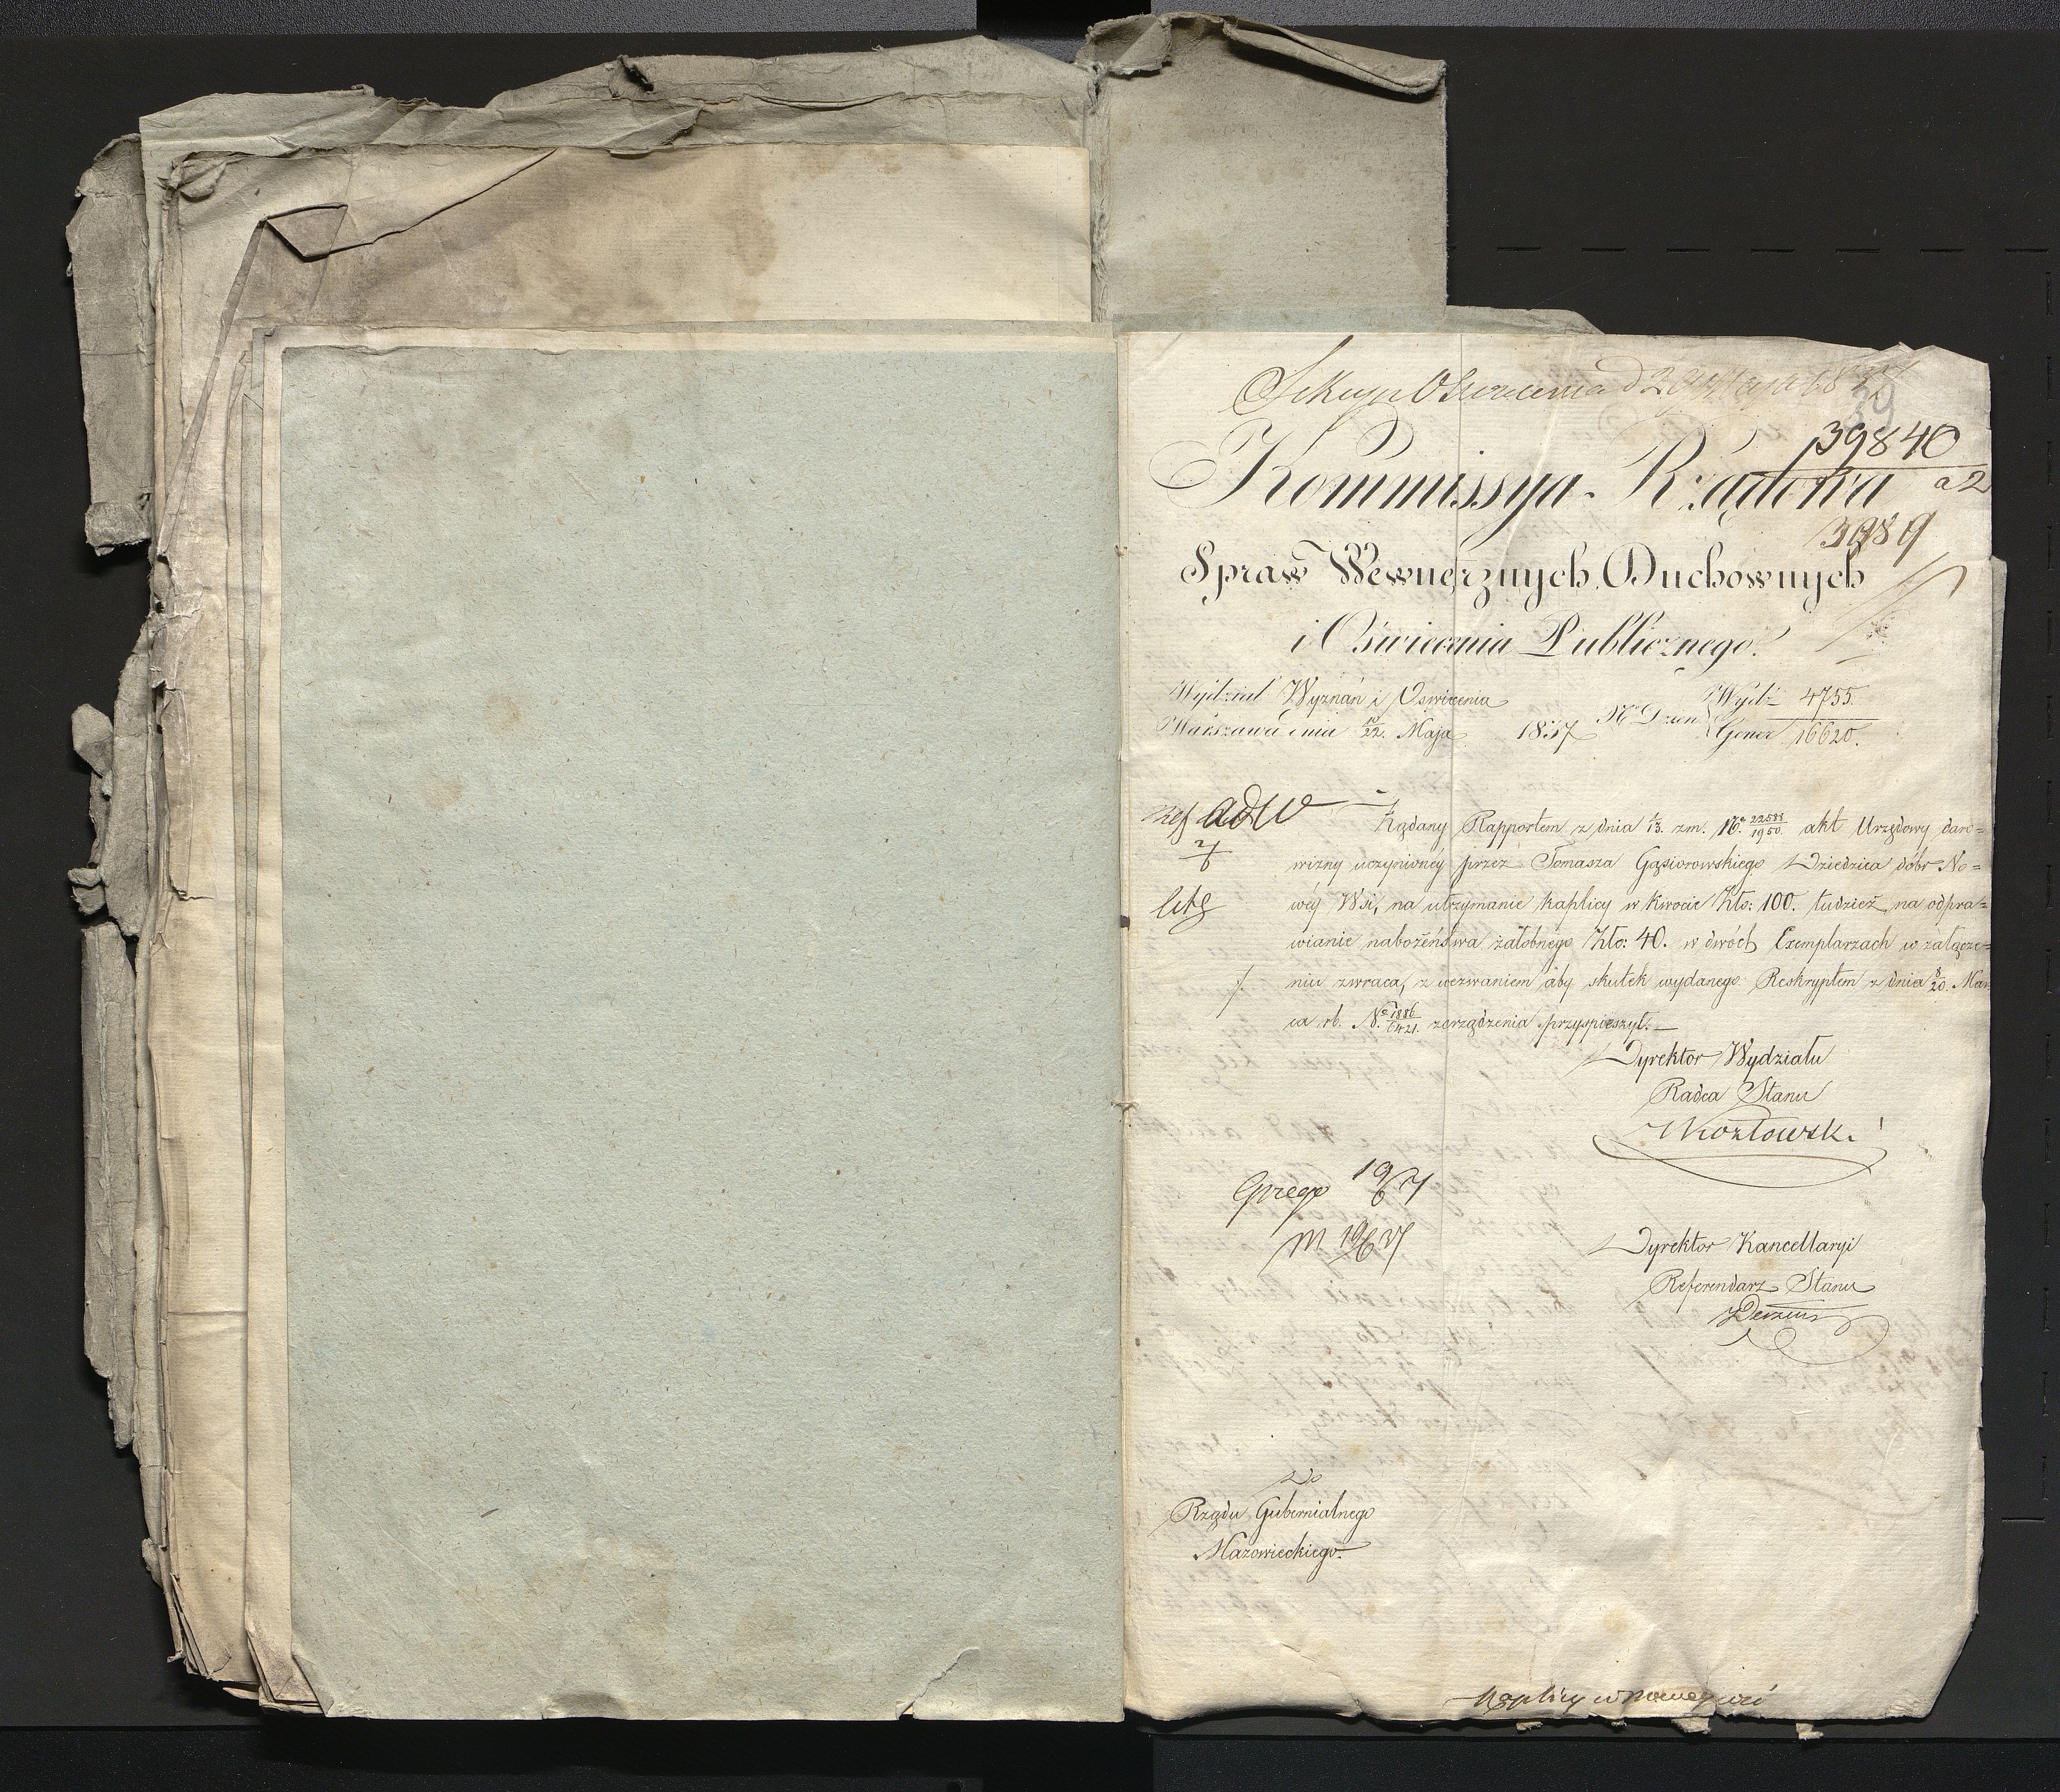 Sekcya Oświecenia d 29 Maja 1837
39
39840
Kommissya Rządowa a2
3989
Spraw Wewnętrznych, Duchownych
i Oświecenia Publicznego.
Wydział Wyznań i Oświecenia
Warszawa dnia 10/22. Maja 1837 Nro Dzien Wydż 4755. Gener 16620.
Żądany Rapportem z dnia 1/13. zm. No. 22588/1950. akt Urzędowy daro=
wizny uczynioney przez Tomasza Gąsiorowskiego Dziedzica dóbr No=
wéy Wsi, na utrzymanie kaplicy w kwocie Złо: 100. tudzież na odpra=
wianie nabożeństwa żałobnego Złо: 40. w dwóch Exemplarzach w załącze=
niu zwraca, z wezwaniem aby skutek wydanego Reskryptem z dnia 8/20. Mar
ca rb. No. 1886/6421. zarządzenia przyspieszył.
Dyrektor Wydziału
Radca Stanu
Kozłowski
19/6 37
M 19/6 37
Dyrektor Kancellaryi
Referendarz Stanu
Do
Rządu Gubernialnego
Mazowieckiego.
Kaplicy w Nowey wsi